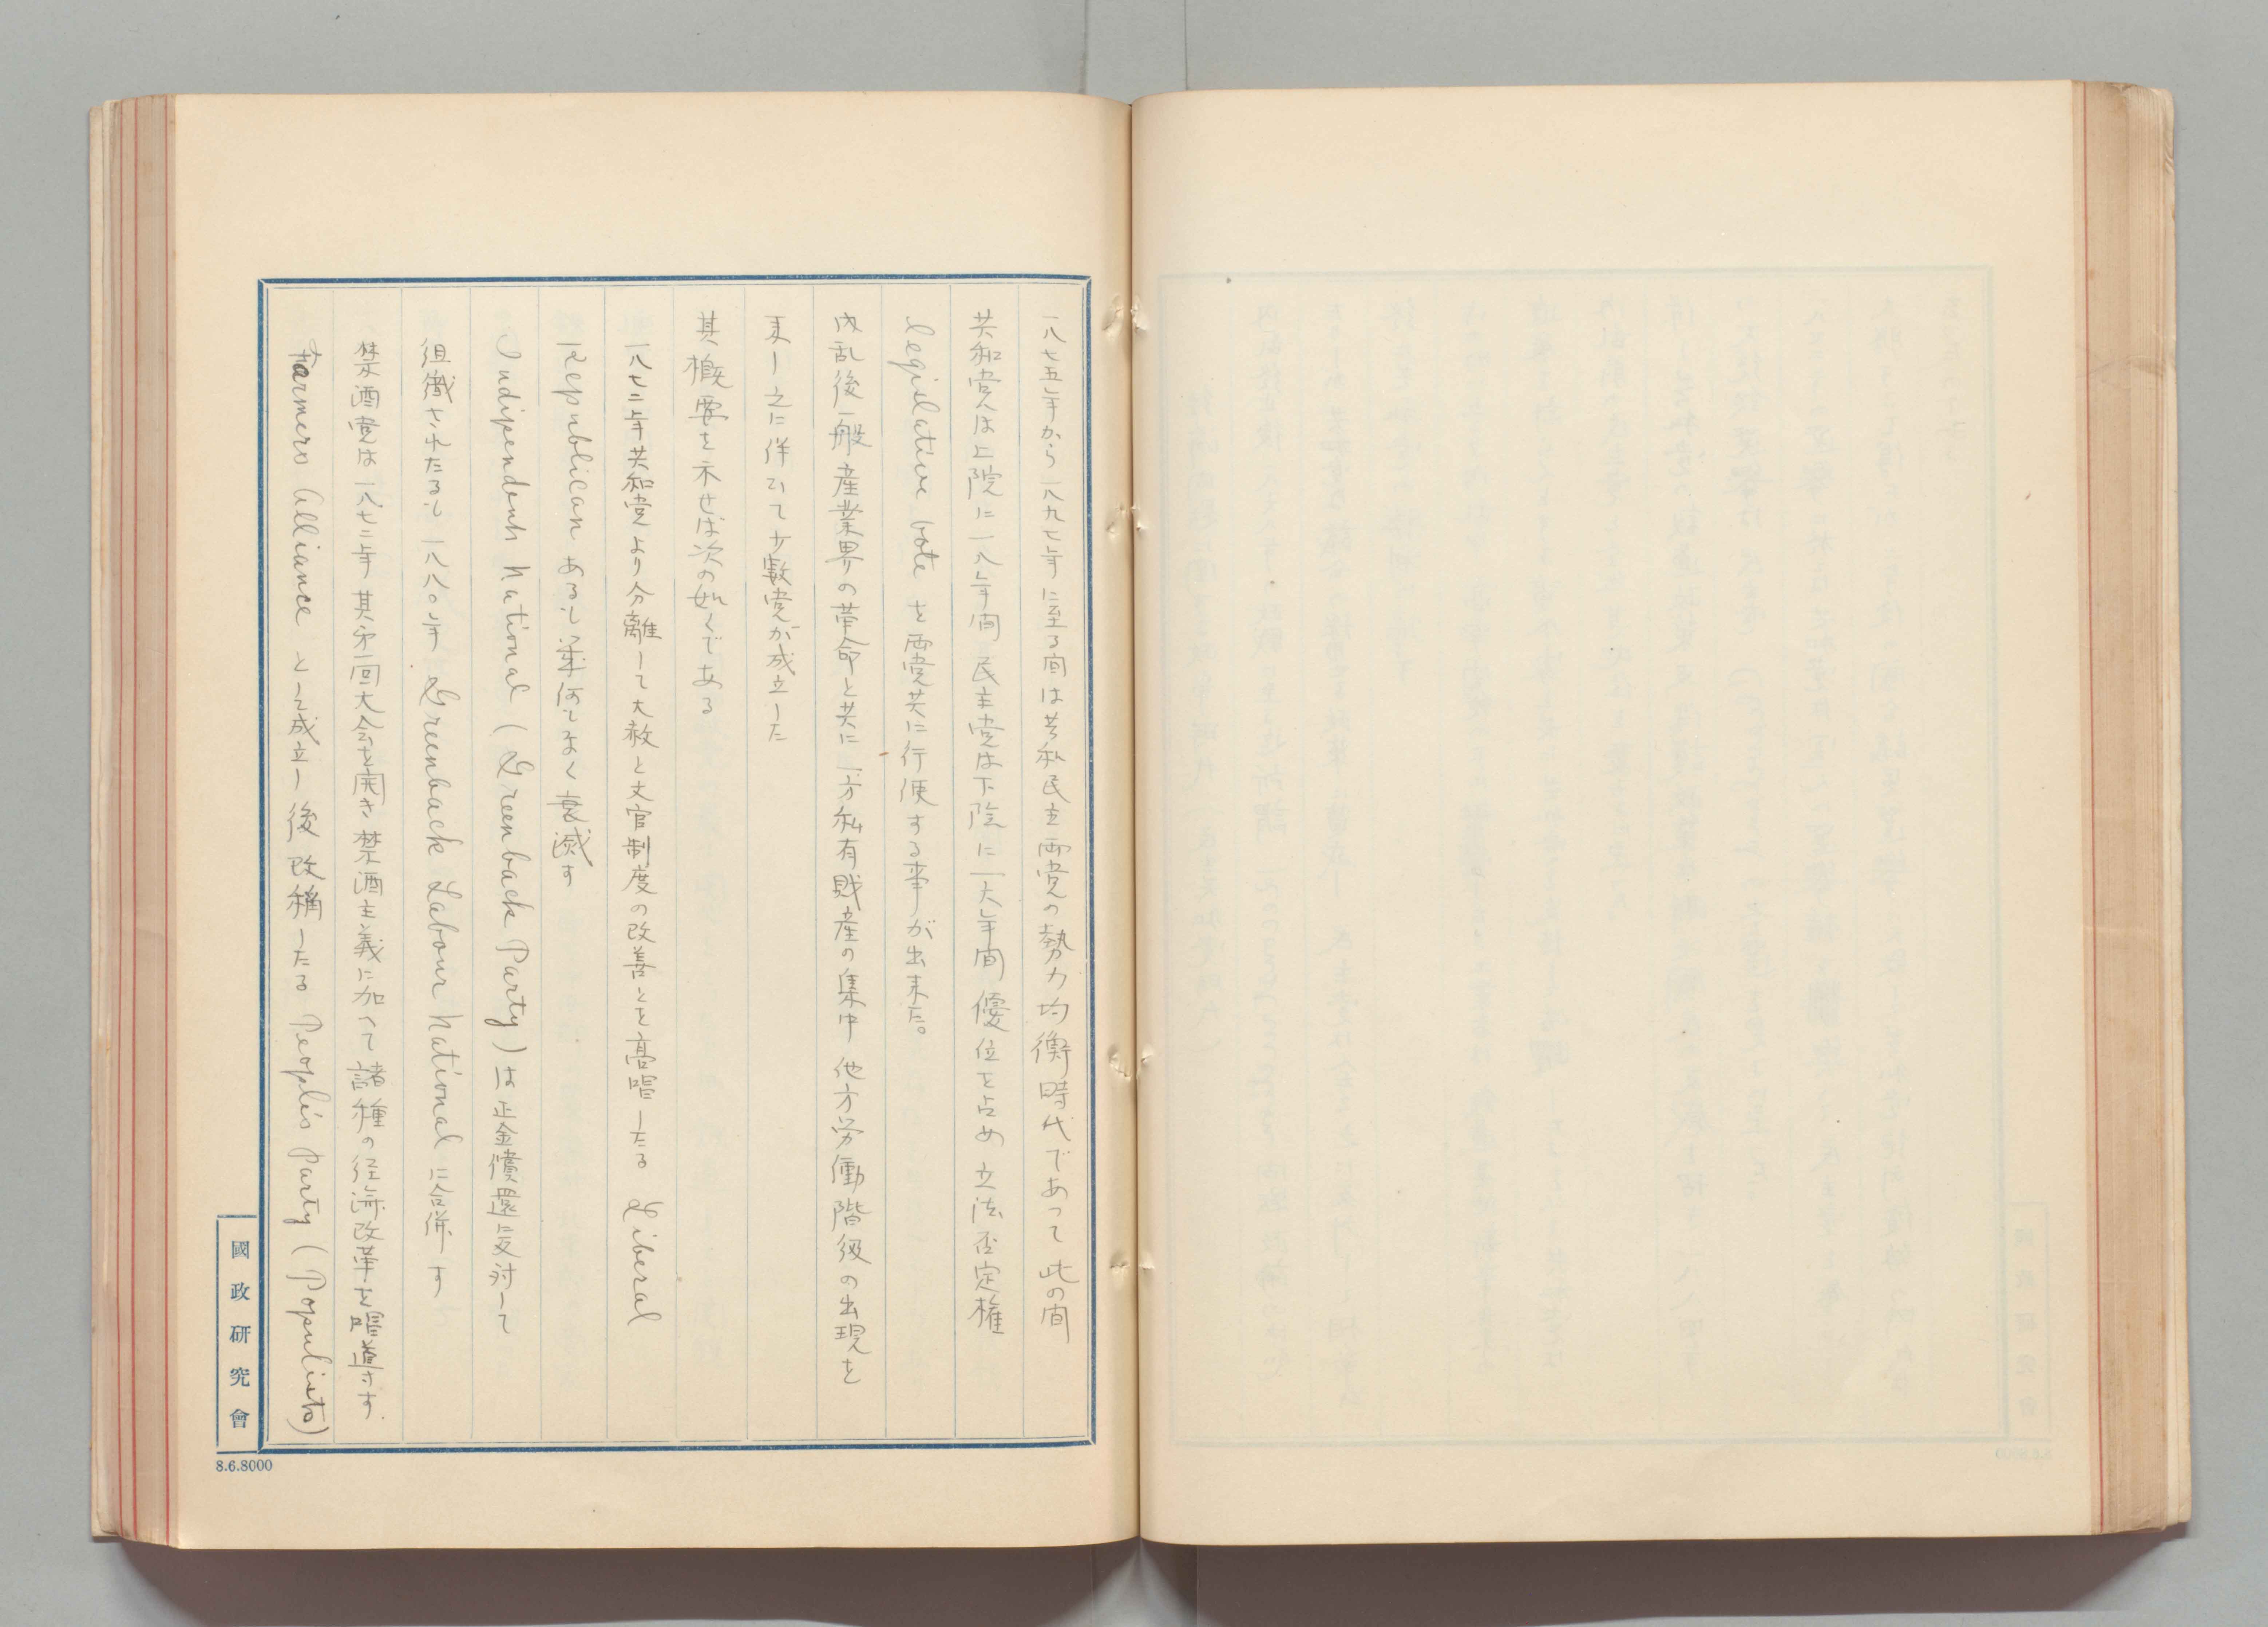 一八七五年から一八九七年に至る間は共和民主両党の勢力均衡時代であって此の間
共和党は上院に一八年間民主党は下院に一六年間優位を占め立法否定権
legislative vote を両党共に行使する事が出来た。
内乱後一般産業界の革命と共に一方私有財産の集中他方労働階級の出現を
来し之に伴ひて少数党が成立した
其概要を示せば次の如くである
一八七二年共和党より分離して大赦と文官制度の改善とを高唱したる Liberal
Republican あるも幾何もなく衰滅す
Independent National (Greenback Party) は正金償還に反対して
組織されたるも一八八〇年 Greenback Labour National に合併す
禁酒党は一八七二年其第一回大会を開き禁酒主義に加へて諸種の経済改革を唱導す。
Farmers Alliance として成立し後改稱したる People's Party (Populists)
國政研究會
8.6.8000